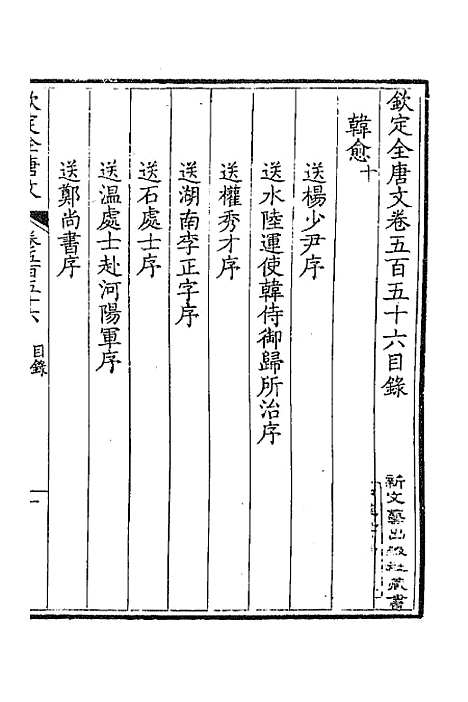 欽定全唐文卷五百五十六目錄
新文藝出版社藏書
韓愈十
送楊少尹序
送水陸運使韓侍御歸所治序
送權秀才序
送湖南李正字序
送石處士序
送溫處士赴河陽軍序
送鄭尚書序
欽定全唐文
卷五百五十六
目錄
一